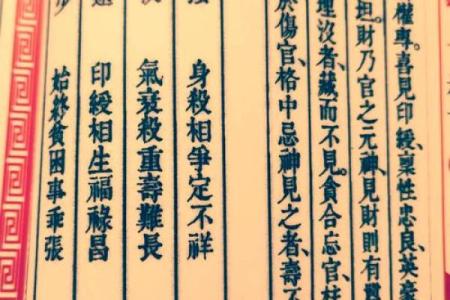 權專。喜見印綬、稟性忠良、英
坦。財乃官之元神、見財則有
理沒者、藏而不見。貪合忘官、
於傷官、格中忌神見之者、壽不
身殺相爭定不祥
氣衰殺重壽難長
印綬相生福祿昌
始終貧困事乖張